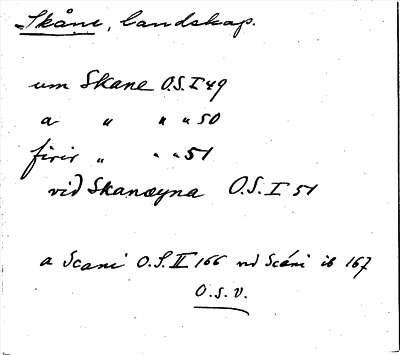 Skåne, landskap.
um Skane O.S. I 49
a " " " 50
firir " " " 51
vid Skanøyna O.S. I 51
a Scani O.S. II 166 vid Scáni ib 167
O.s.v.